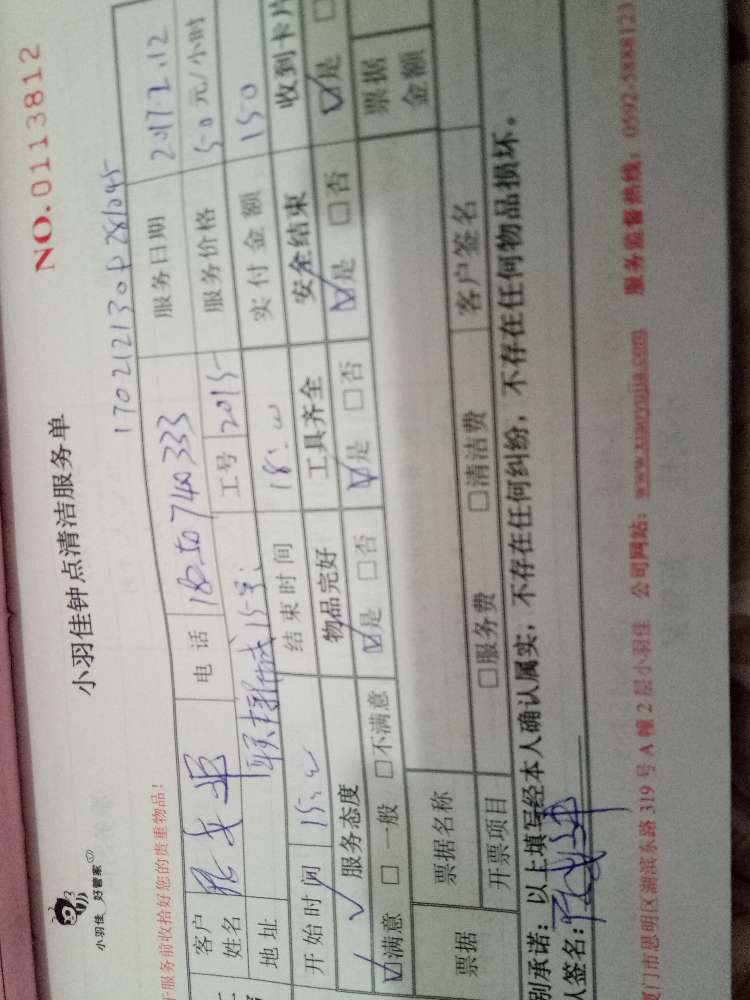 小羽佳 好管家
小羽佳钟点清洁服务单
NO.0113812
于服务前收拾好您的贵重物品!
客户姓名 电话 服务日期 2017.2.12
地址 工号 2015 服务价格 50元/小时
开始时间 15: 结束时间 18: 实付金额 150
服务态度 物品完好 工具齐全 安全结束 收到卡片
☑满意 □一般 □不满意 ☑是 □否 ☑是 □否 ☑是 □否 ☑是 □
票据 票据名称 票据金额
开票项目 □服务费 □清洁费 客户签名
别承诺:以上填写经本人确认属实,不存在任何纠纷,不存在任何物品损坏。
签名:
门市思明区湖滨东路319号A幢2层小羽佳 公司网站:www.xiaoyujia.com 服务监督热线:0592-5888123